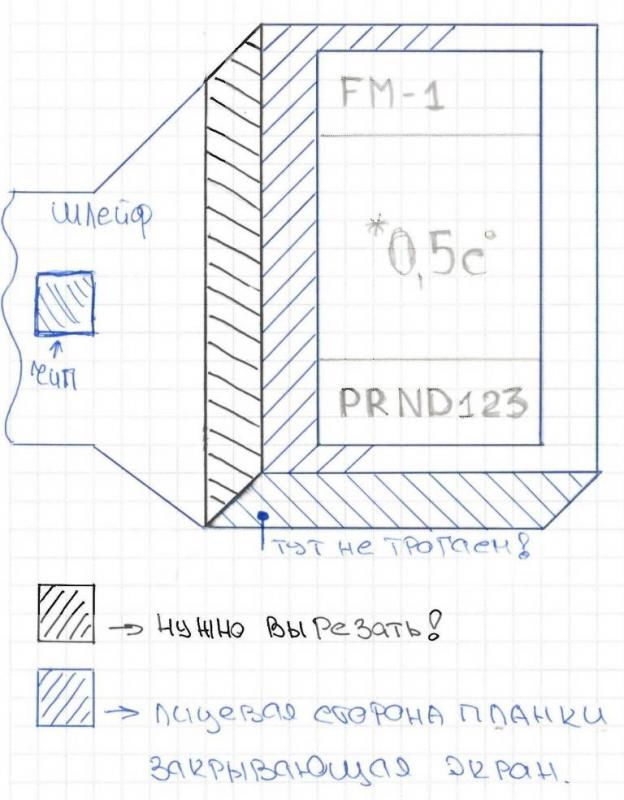 FM-1
шлейф
*0,5c°
чип
PRND123
тут не трогаем!
→ нужно вырезать!
→ лицевая сторона планки
закрывающая экран.